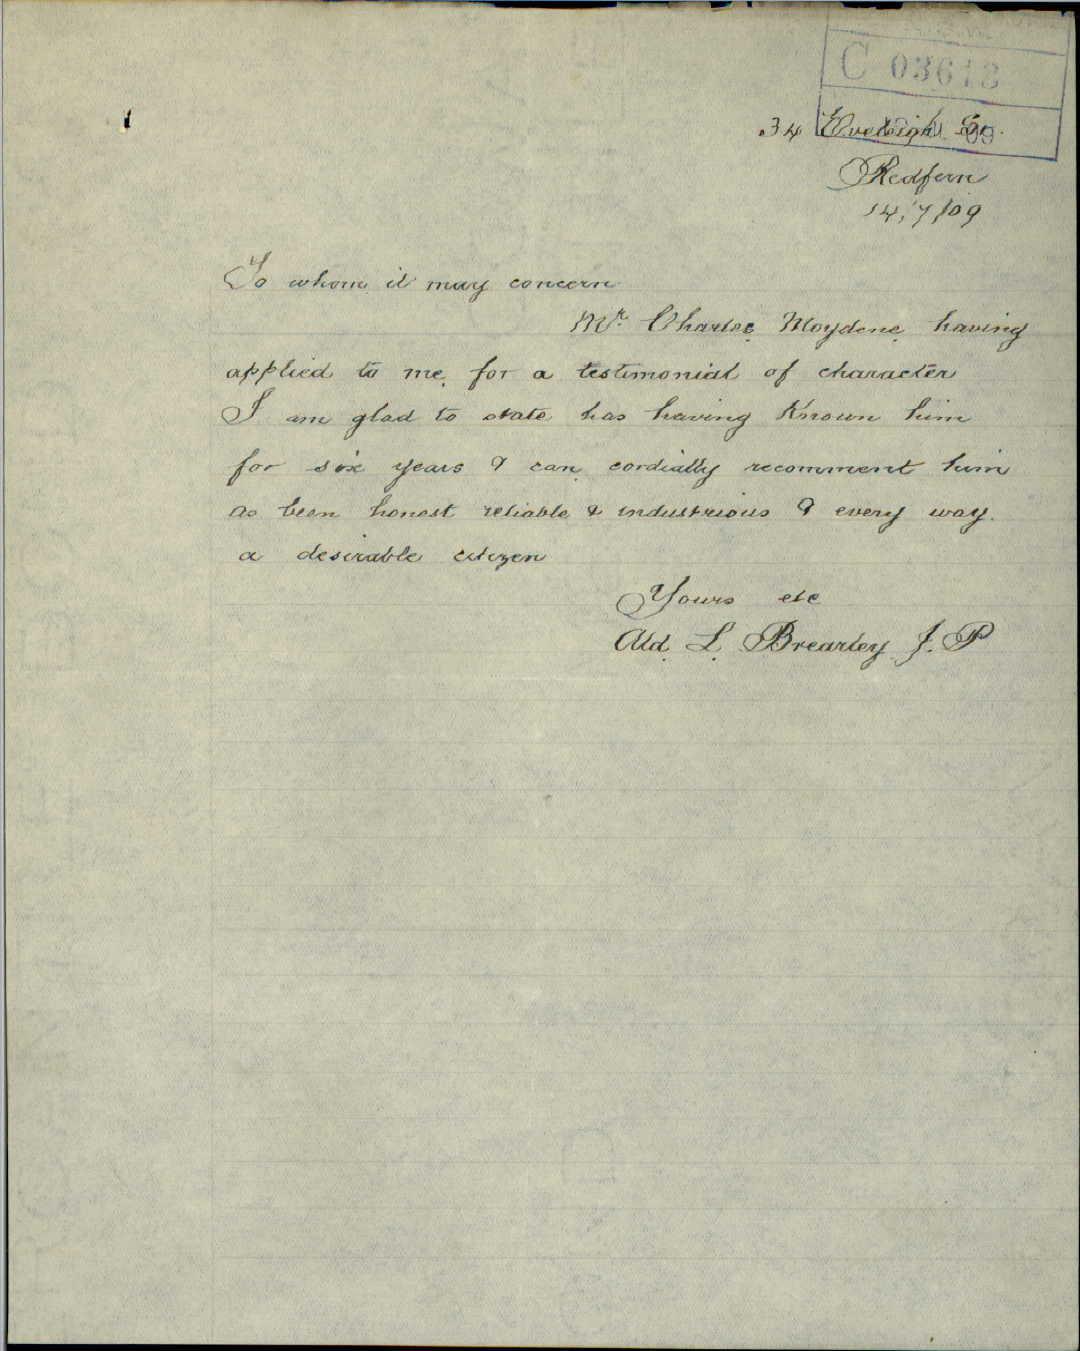 C 03613
34 Eveleigh St.
Redfern
14/7/09
To whom it may concern
Mr. Charles Moydene having
applied to me for a testimonial of character
I am glad to state has having Known him
for six years & can cordially recomment him
as been honest reliable & industrious & every way
a desirable citizen
Yours etc
Ald. L. Brearley J.P